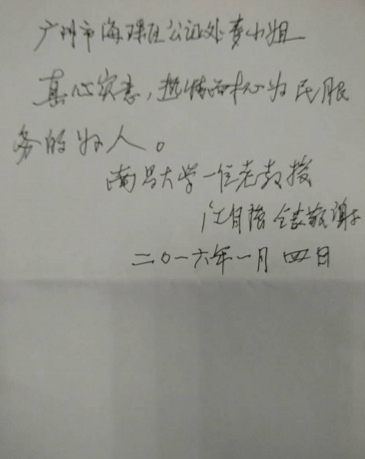 广州市海珠区公证处李小姐
真心实意，热情而耐心为民服
务的好人。
南昌大学一位老教授
敬谢
二〇一六年一月四日